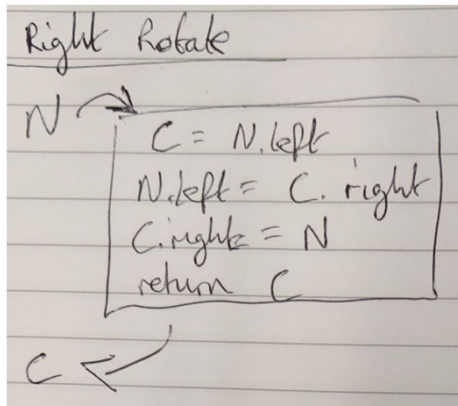 Right Rotate
N
C = N.left
N.left = C. right
C.right = N
return C
C